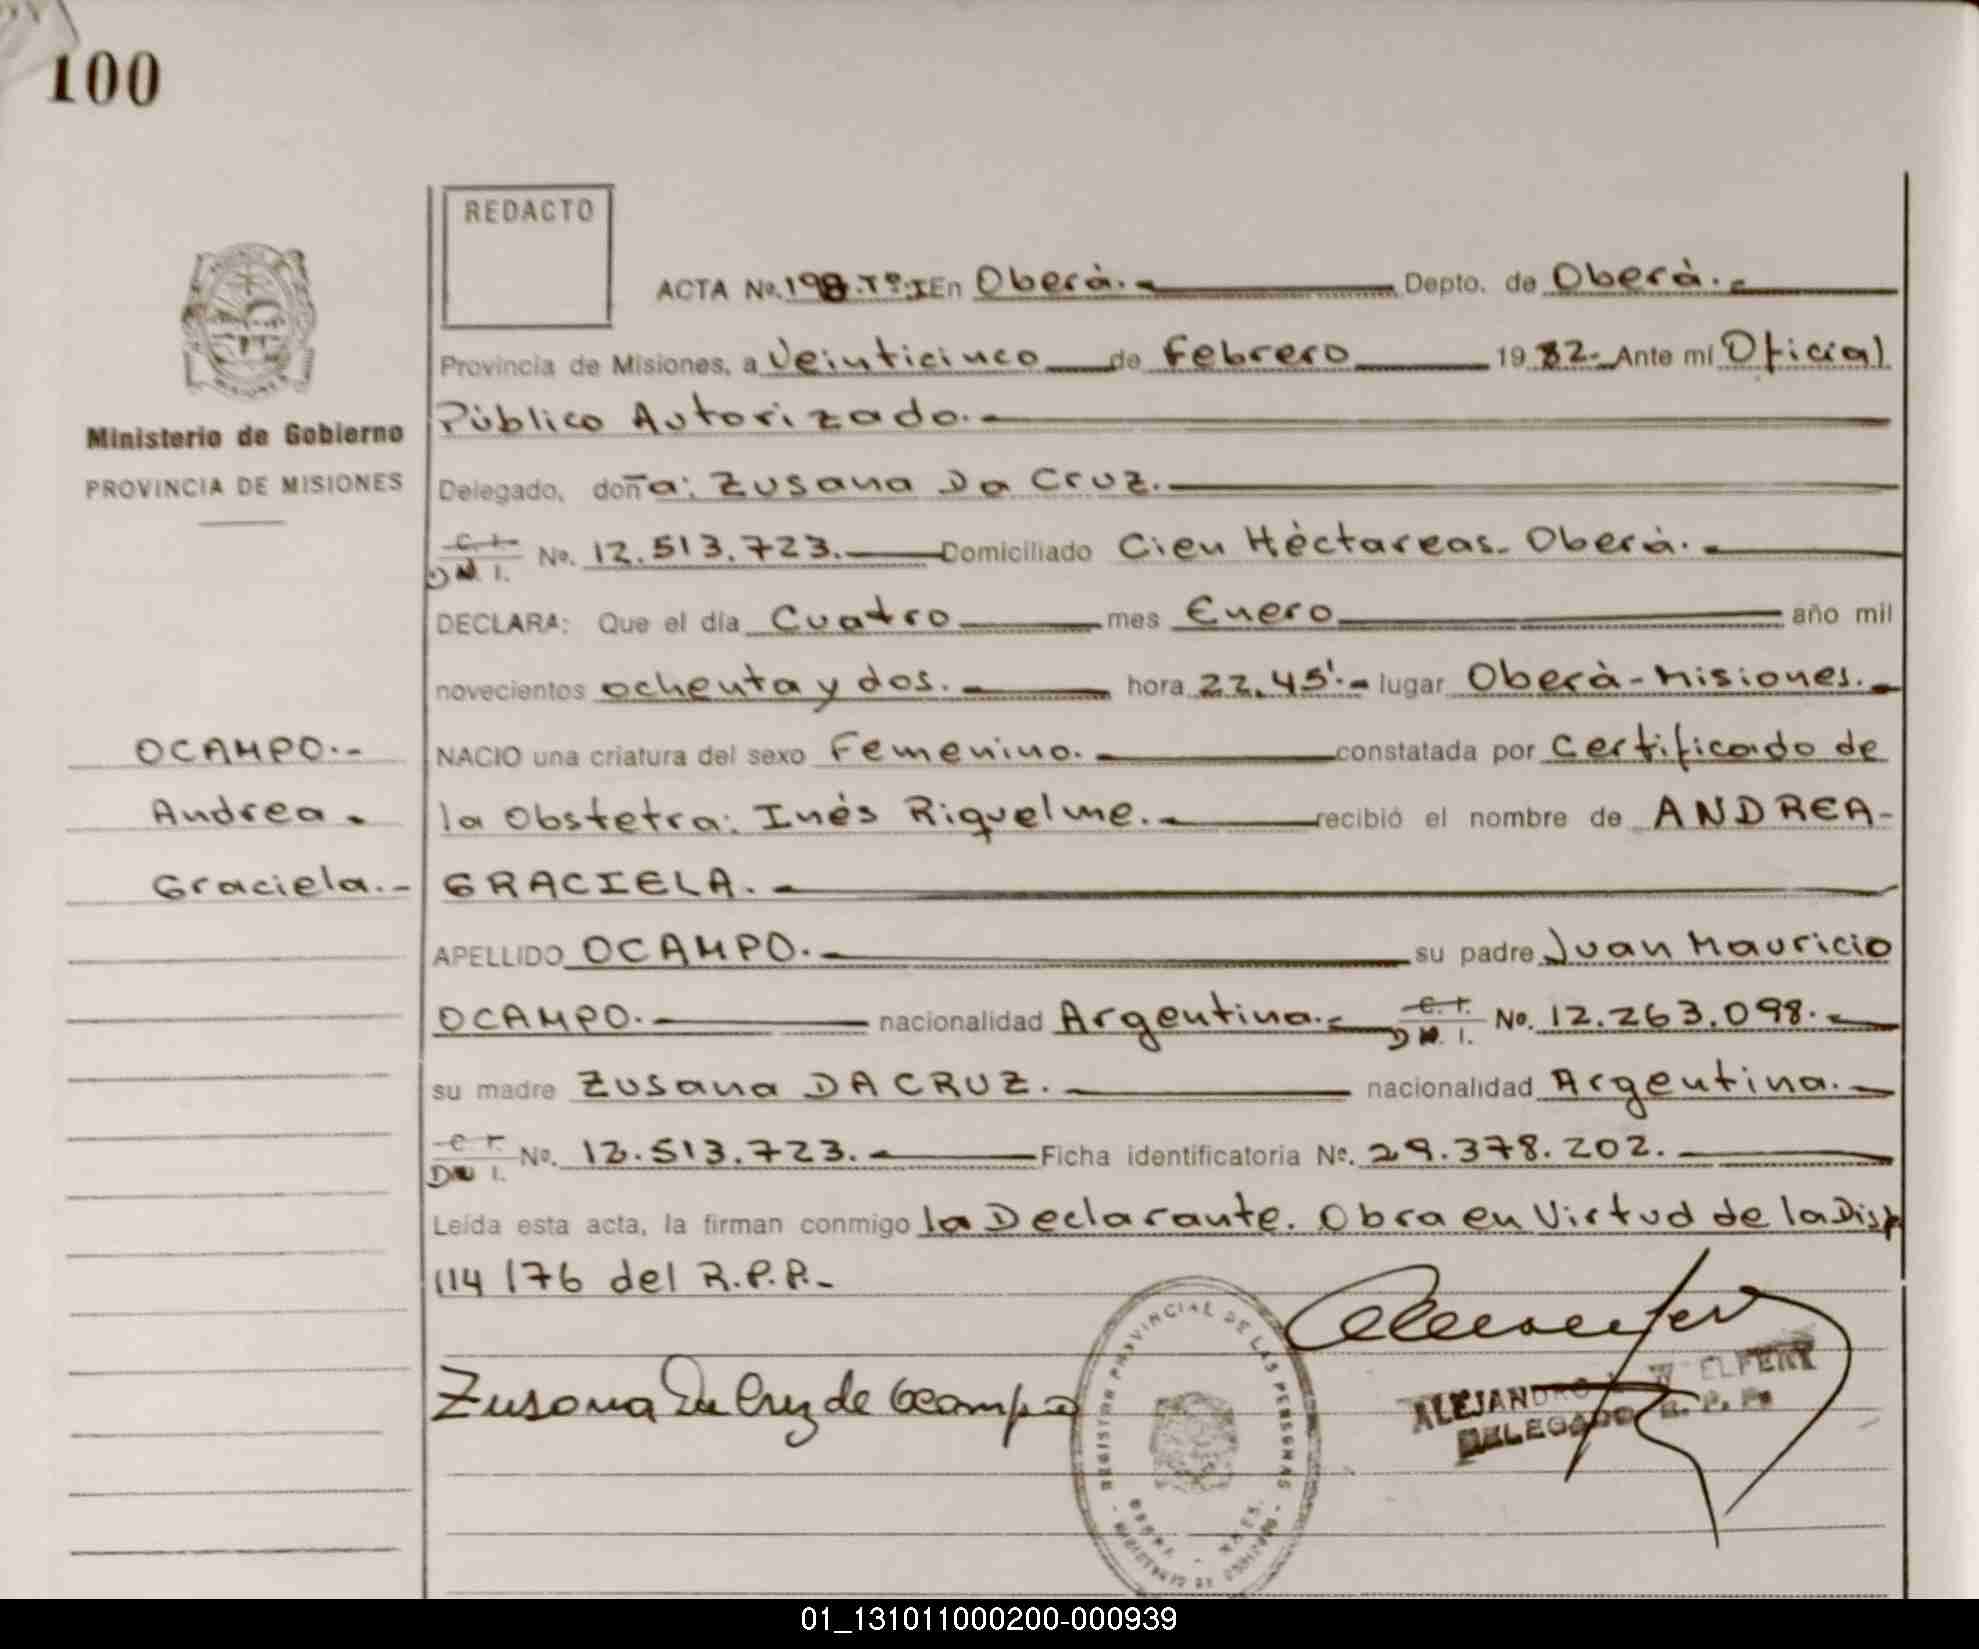 100
REDACTO
ACTA No. 198.Tº.I En Oberà.- Depto. de Oberà.-
Provincia de Misiones, a Veinticinco de Febrero 19 82.- Ante mí Oficial
Pùblico Autorizado.-
Ministerio de Gobierno
PROVINCIA DE MISIONES
Delegado, doña: Zusana Da Cruz.-
C. I. D N. I. No. 12.513.723.- Domiciliado Cien Hèctareas- Oberà.-
DECLARA: Que el día Cuatro mes Enero año mil
novecientos ochenta y dos.- hora 22,45'.- lugar Oberà-Misiones.-
OCAMPO.-
NACIO una criatura del sexo Femenino.- constatada por Certificado de
Andrea.
la Obstetra: Inés Riquelme.- recibió el nombre de ANDREA-
Graciela.-
GRACIELA.-
APELLIDO OCAMPO.- su padre Juan Mauricio
OCAMPO.- nacionalidad Argentina.- C. I. D N. I. No. 12.263.098.-
su madre Zusana DA CRUZ.- nacionalidad Argentina.-
C. I. D N I. No. 12.513.723.- Ficha identificatoria No. 29.378.202.-
Leída esta acta, la firman conmigo la Declarante. Obra en Virtud de la Disp
114/76 del R.P.P.-
Zusana Da Cruz de Ocampo
REGISTRO PROVINCIAL DE LAS PERSONAS
OBERA - MNES.
ALEJANDRO W ELFERT
DELEGADO R. P. P.
01_131011000200-000939